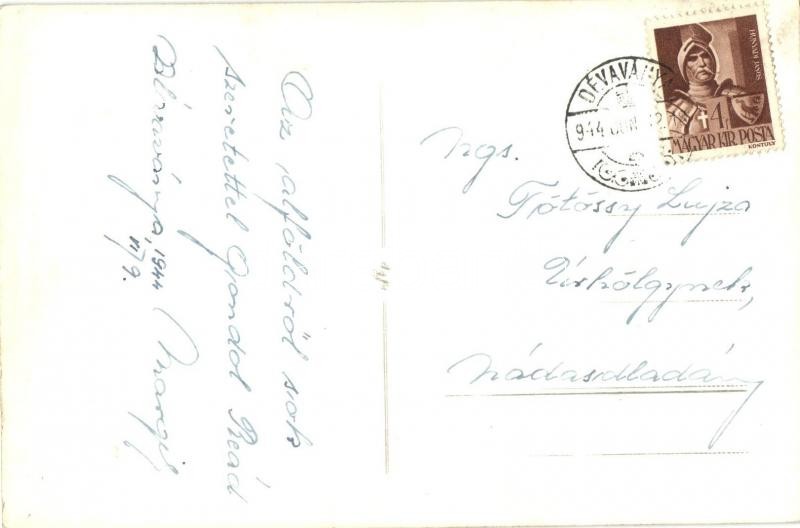 Az alföldről sok
szeretettel gondol Reád
Margit
Dévaványa, 1944
VI/9.
DÉVAVÁNYA
944 JUN. 12.
HUNYADI JÁNOS
4f
MAGYAR KIR. POSTA
KONTULY
Ngs.
Tótössy Lujza
Úrhölgynek,
Nádasdladány